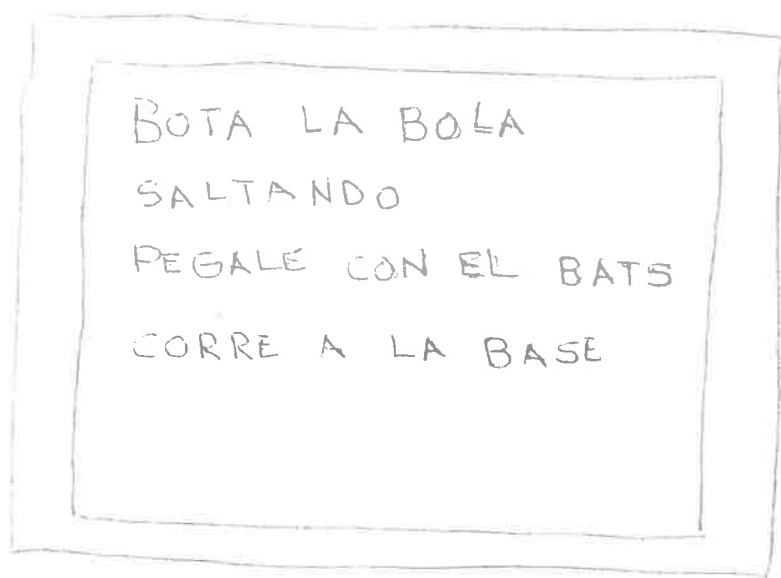 BOTA LA BOLA
SALTANDO
PEGALE CON EL BATS
CORRE A LA BASE